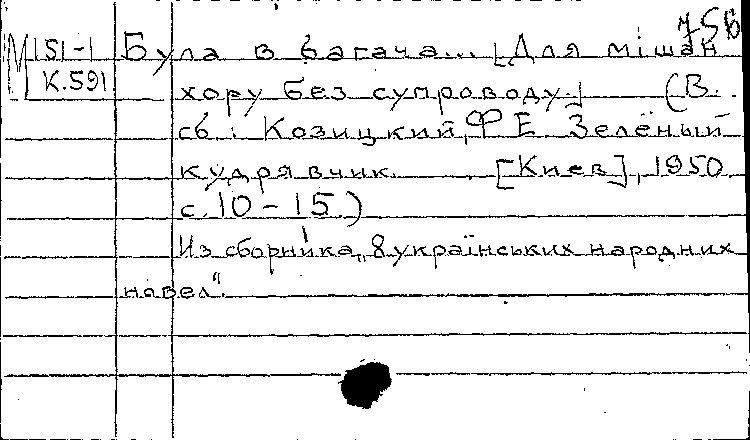 756
М 151-1
К.591
Була в багача... [Для мішан
хору без супроводу.] (В
сб.: Козицкий, Ф Е Зелёный
кудрявчик. [Киев], 1950,
с. 10-15.)
Из сборника „8 українських народних
новел“.